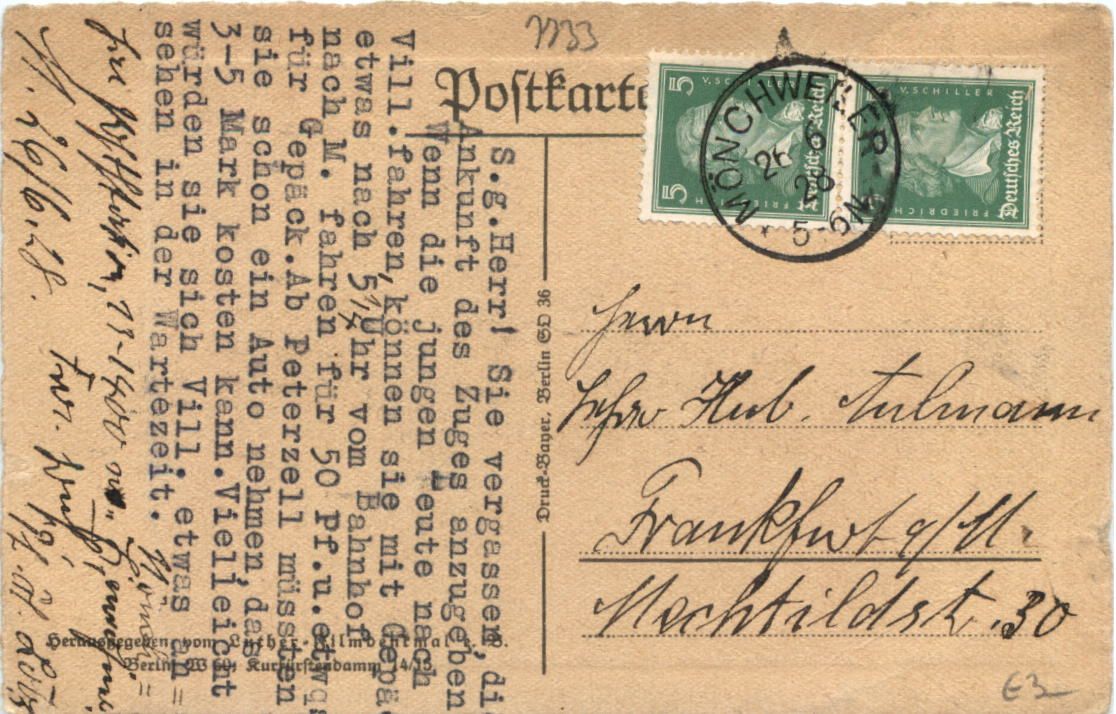 7733
Postkarte
5 V. SCHILLER
5 FRIEDRICH
Deutsches Reich
V. SCHILLER
FRIEDRICH
Deutsches Reich
MÖNCHWEILER
26 6
28
5-6N
S.g.Herr! Sie vergassem, di
Ankunft des Zuges anzugeben
Wenn die jungen Leute nach
Vill.fahren,können sie mit Gepä
etwas nach 5¼ Uhr vom Bahnhof
nach M. fahren für 50 Pf.u.etwa
für Gepäck.Ab Peterzell müssten
sie schon ein Auto nehmen,das
3-5 Mark kosten kann.Vielleicht
würden sie sich Vill. etwas an=
sehen in der Wartezeit.
M. 26/6.28.
Druck-Bayer. Berlin SO 36
Herrn
Hub. Aulmann
Frankfurt a/M.
Mechtildstr. 30
Herausgegeben vom Luther-Filmdenkmal e. V.
Berlin W 50, Kurfürstendamm 14/15
€3-